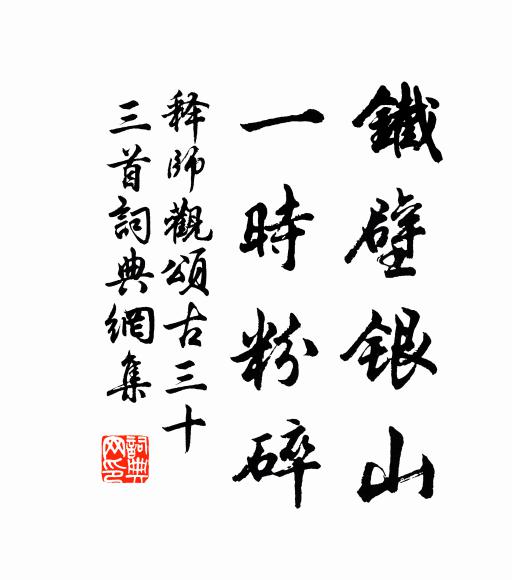 鐵壁銀山
一時粉碎
释師觀頌古三十
三首詞典網集
詞典网印